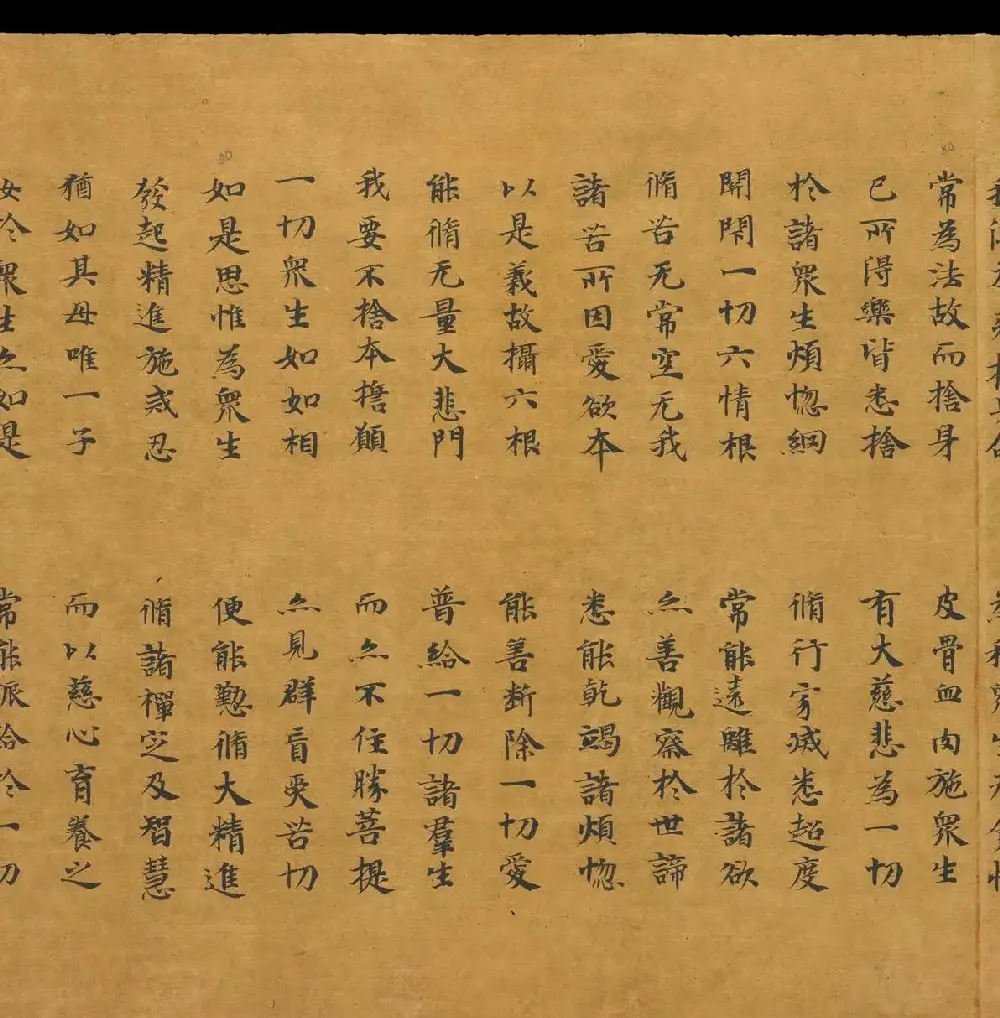 常為法故而捨身　皮骨血肉施衆生
已所得樂皆悉捨　有大慈悲為一切
於諸衆生煩惚網　脩行寂滅悉超度
開閇一切六情根　常能遠離於諸欲
脩苦无常空无我　亦善觀察於世諦
諸苦所因愛欲本　悉能乾竭諸煩惚
以是義故攝六根　能善断除一切愛
能脩无量大悲門　普給一切諸羣生
我要不捨本擔願　而亦不住勝菩提
一切衆生如如相　亦見群盲受苦切
如是思惟為衆生　便能懃脩大精進
發起精進施戒忍　脩諸禪定及智慧
猶如其母唯一子　而以慈心育養之
汝於衆生亦如是　常能給於一切